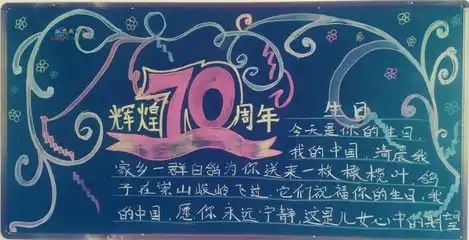 辉煌70周年
生日
今天是你的生日,
我的中国,清晨我
家乡一群白鸽为你送来一枚橄榄叶,鸽
子在崇山峻岭飞过,它们祝福你的生日,我
的中国,愿你永远宁静,这是儿女心中的期望